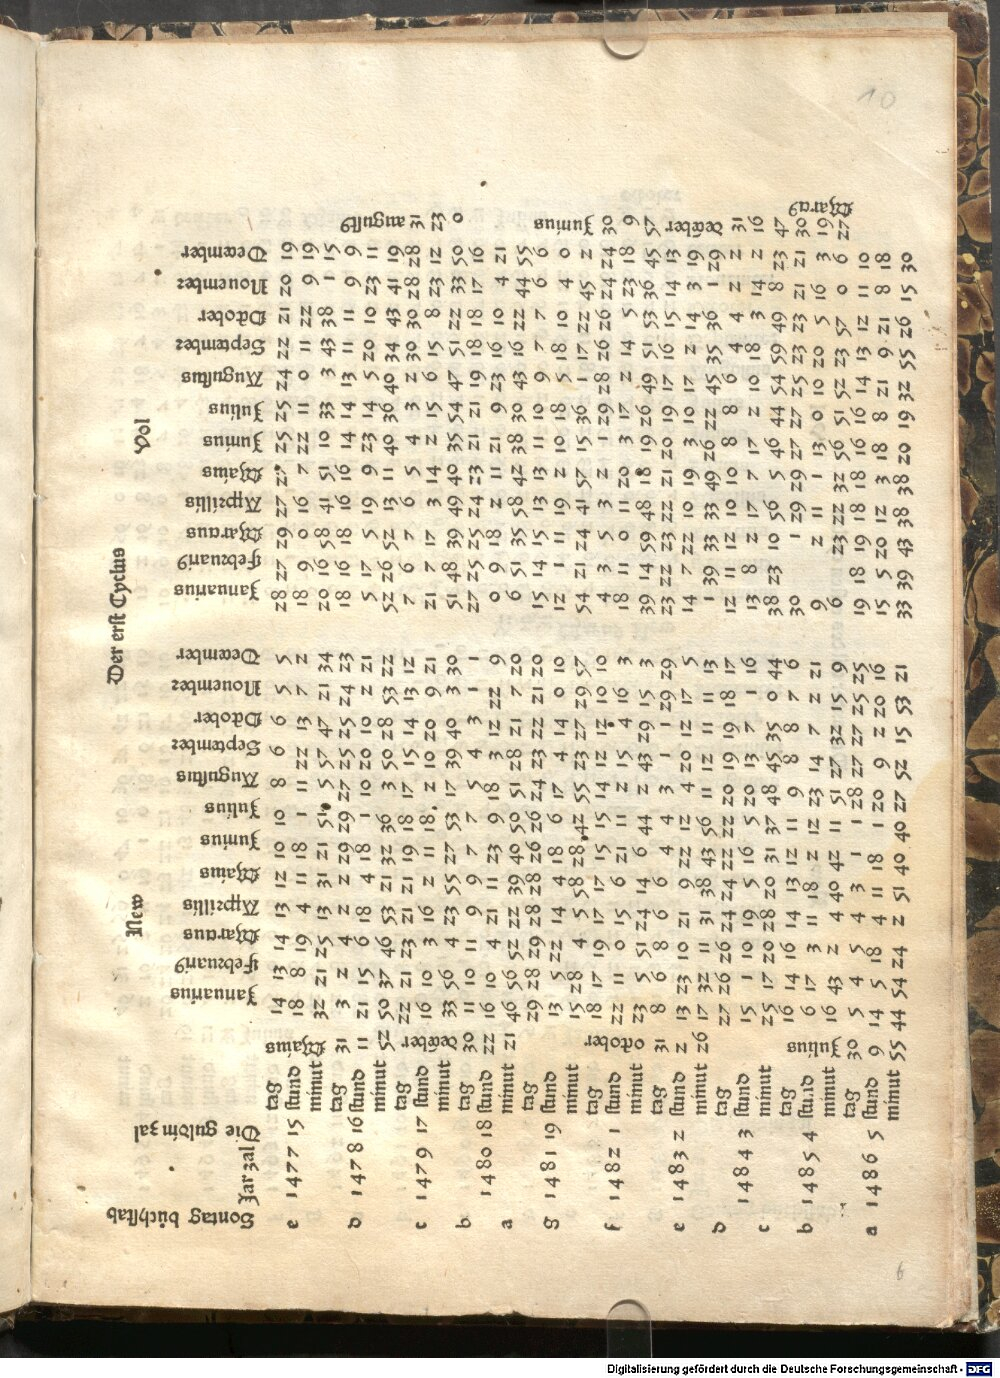 Der erst Cyclus
New Vol
Sontag bůchstab Jar zal Die guldin zal Januarius Februari9 Marcius Apprillis Maius Junius Julius Augustus September October Nouember December Januarius Februari9 Marcius Apprillis Maius Junius Julius Augustus September October Nouember December
tag 14 13 14 13 12 10 10 8 6 6 5 5 28 27 29 27 27 25 25 24 22 21 20 19
e 1477 15 stund 18 8 2 4 11 18 11 5 22 13 7 2 18 9 0 16 7 22 11 0 11 22 9 19
minut 32 21 25 13 31 21 51 57 57 47 21 34 20 16 58 41 51 10 33 3 43 38 1 15
tag Maius 31 3 2 4 2 2 29 29 27 25 25 24 23 18 16 18 16 16 14 14 13 11 11 9 9 august9
d 1478 16 stund 11 21 15 6 18 4 18 1 10 20 10 2 21 5 17 5 19 9 23 14 5 20 10 23 11
minut 52 50 37 46 53 21 32 36 3 50 28 53 22 52 26 52 13 11 40 36 40 34 43 41 19
tag 22 21 23 21 19 19 18 17 15 14 13 12 7 6 7 6 5 4 3 2 30 30 28 28 11
c 1479 17 stund december 16 10 3 16 2 11 18 2 10 20 9 21 21 7 17 3 14 2 15 6 15 8 23 12 23
minut 33 56 4 23 55 27 53 17 39 40 3 30 51 48 39 49 40 35 54 47 51 22 33 50 0
b tag 30 11 10 11 9 9 7 7 5 4 3 1 1 27 25 25 24 23 21 21 19 18 18 17 16
1480 18 stund 22 16 10 4 21 11 23 9 18 3 12 22 9 0 9 18 2 11 21 9 23 16 10 4 21
a minut 21 46 56 52 22 39 40 50 51 28 21 7 20 6 51 35 58 42 38 30 43 16 22 44 55
tag 29 28 29 28 28 26 26 24 23 22 21 20 15 14 15 13 13 11 10 9 7 7 6 6
g 1481 19 stund 13 5 22 14 4 18 6 17 4 14 0 10 12 1 11 19 2 10 18 5 18 10 4 0
minut 15 28 4 5 58 28 42 55 23 27 29 57 54 21 24 41 57 15 36 1 17 22 45 2
tag october 18 17 19 17 17 15 15 14 12 12 10 10 4 3 5 3 2 1 29 28 26 26 24 24 Junius 30
f 1482 1 stund 22 11 0 15 6 21 11 2 15 4 16 3 18 11 0 11 20 3 17 2 14 5 23 18 9
minut 23 5 51 24 14 6 44 2 43 29 15 3 39 14 59 48 18 19 26 49 51 53 36 45 57
tag 31 8 6 8 6 6 4 4 3 1 1 29 29 23 22 23 22 21 20 19 17 16 15 14 13
e 1483 2 stund 2 13 23 10 21 9 22 12 4 20 12 17 5 14 7 22 10 19 3 10 17 2 14 3 19
minut 26 17 32 11 31 38 43 56 11 12 11 11 13 1 39 33 33 49 26 22 45 35 36 1 29 december
d tag 27 26 26 24 24 22 22 20 19 19 18 17 12 11 12 10 10 8 8 6 4 4 2 2 31
1484 3 stund 15 1 10 19 5 16 5 20 13 7 1 16 13 8 2 17 7 17 2 10 18 3 14 2 16
c minut 25 17 20 28 20 31 37 48 45 35 0 44 38 23 10 56 5 46 44 54 59 49 8 23 47
tag Julius 16 14 16 14 13 12 11 9 8 8 7 6 30 1 29 29 27 27 25 23 23 21 21 30
b 1485 4 stund 6 17 3 11 18 2 12 23 14 7 2 21 9 2 11 1 13 0 10 20 5 16 3 19
minut 16 43 2 4 40 42 11 51 27 32 15 9 6 23 22 32 56 51 52 23 57 0 6 27 Marci9
tag 30 5 4 5 4 3 1 1 28 27 27 25 25 19 18 19 18 18 16 16 14 13 12 11 10
a 1486 5 stund 9 14 5 18 4 11 18 1 20 9 2 20 16 15 5 20 12 3 18 8 21 9 21 8 18
minut 55 44 54 24 2 51 40 40 27 52 15 53 21 33 39 43 38 38 20 19 32 55 26 15 30
10
6
Digitalisierung gefördert durch die Deutsche Forschungsgemeinschaft - DFG